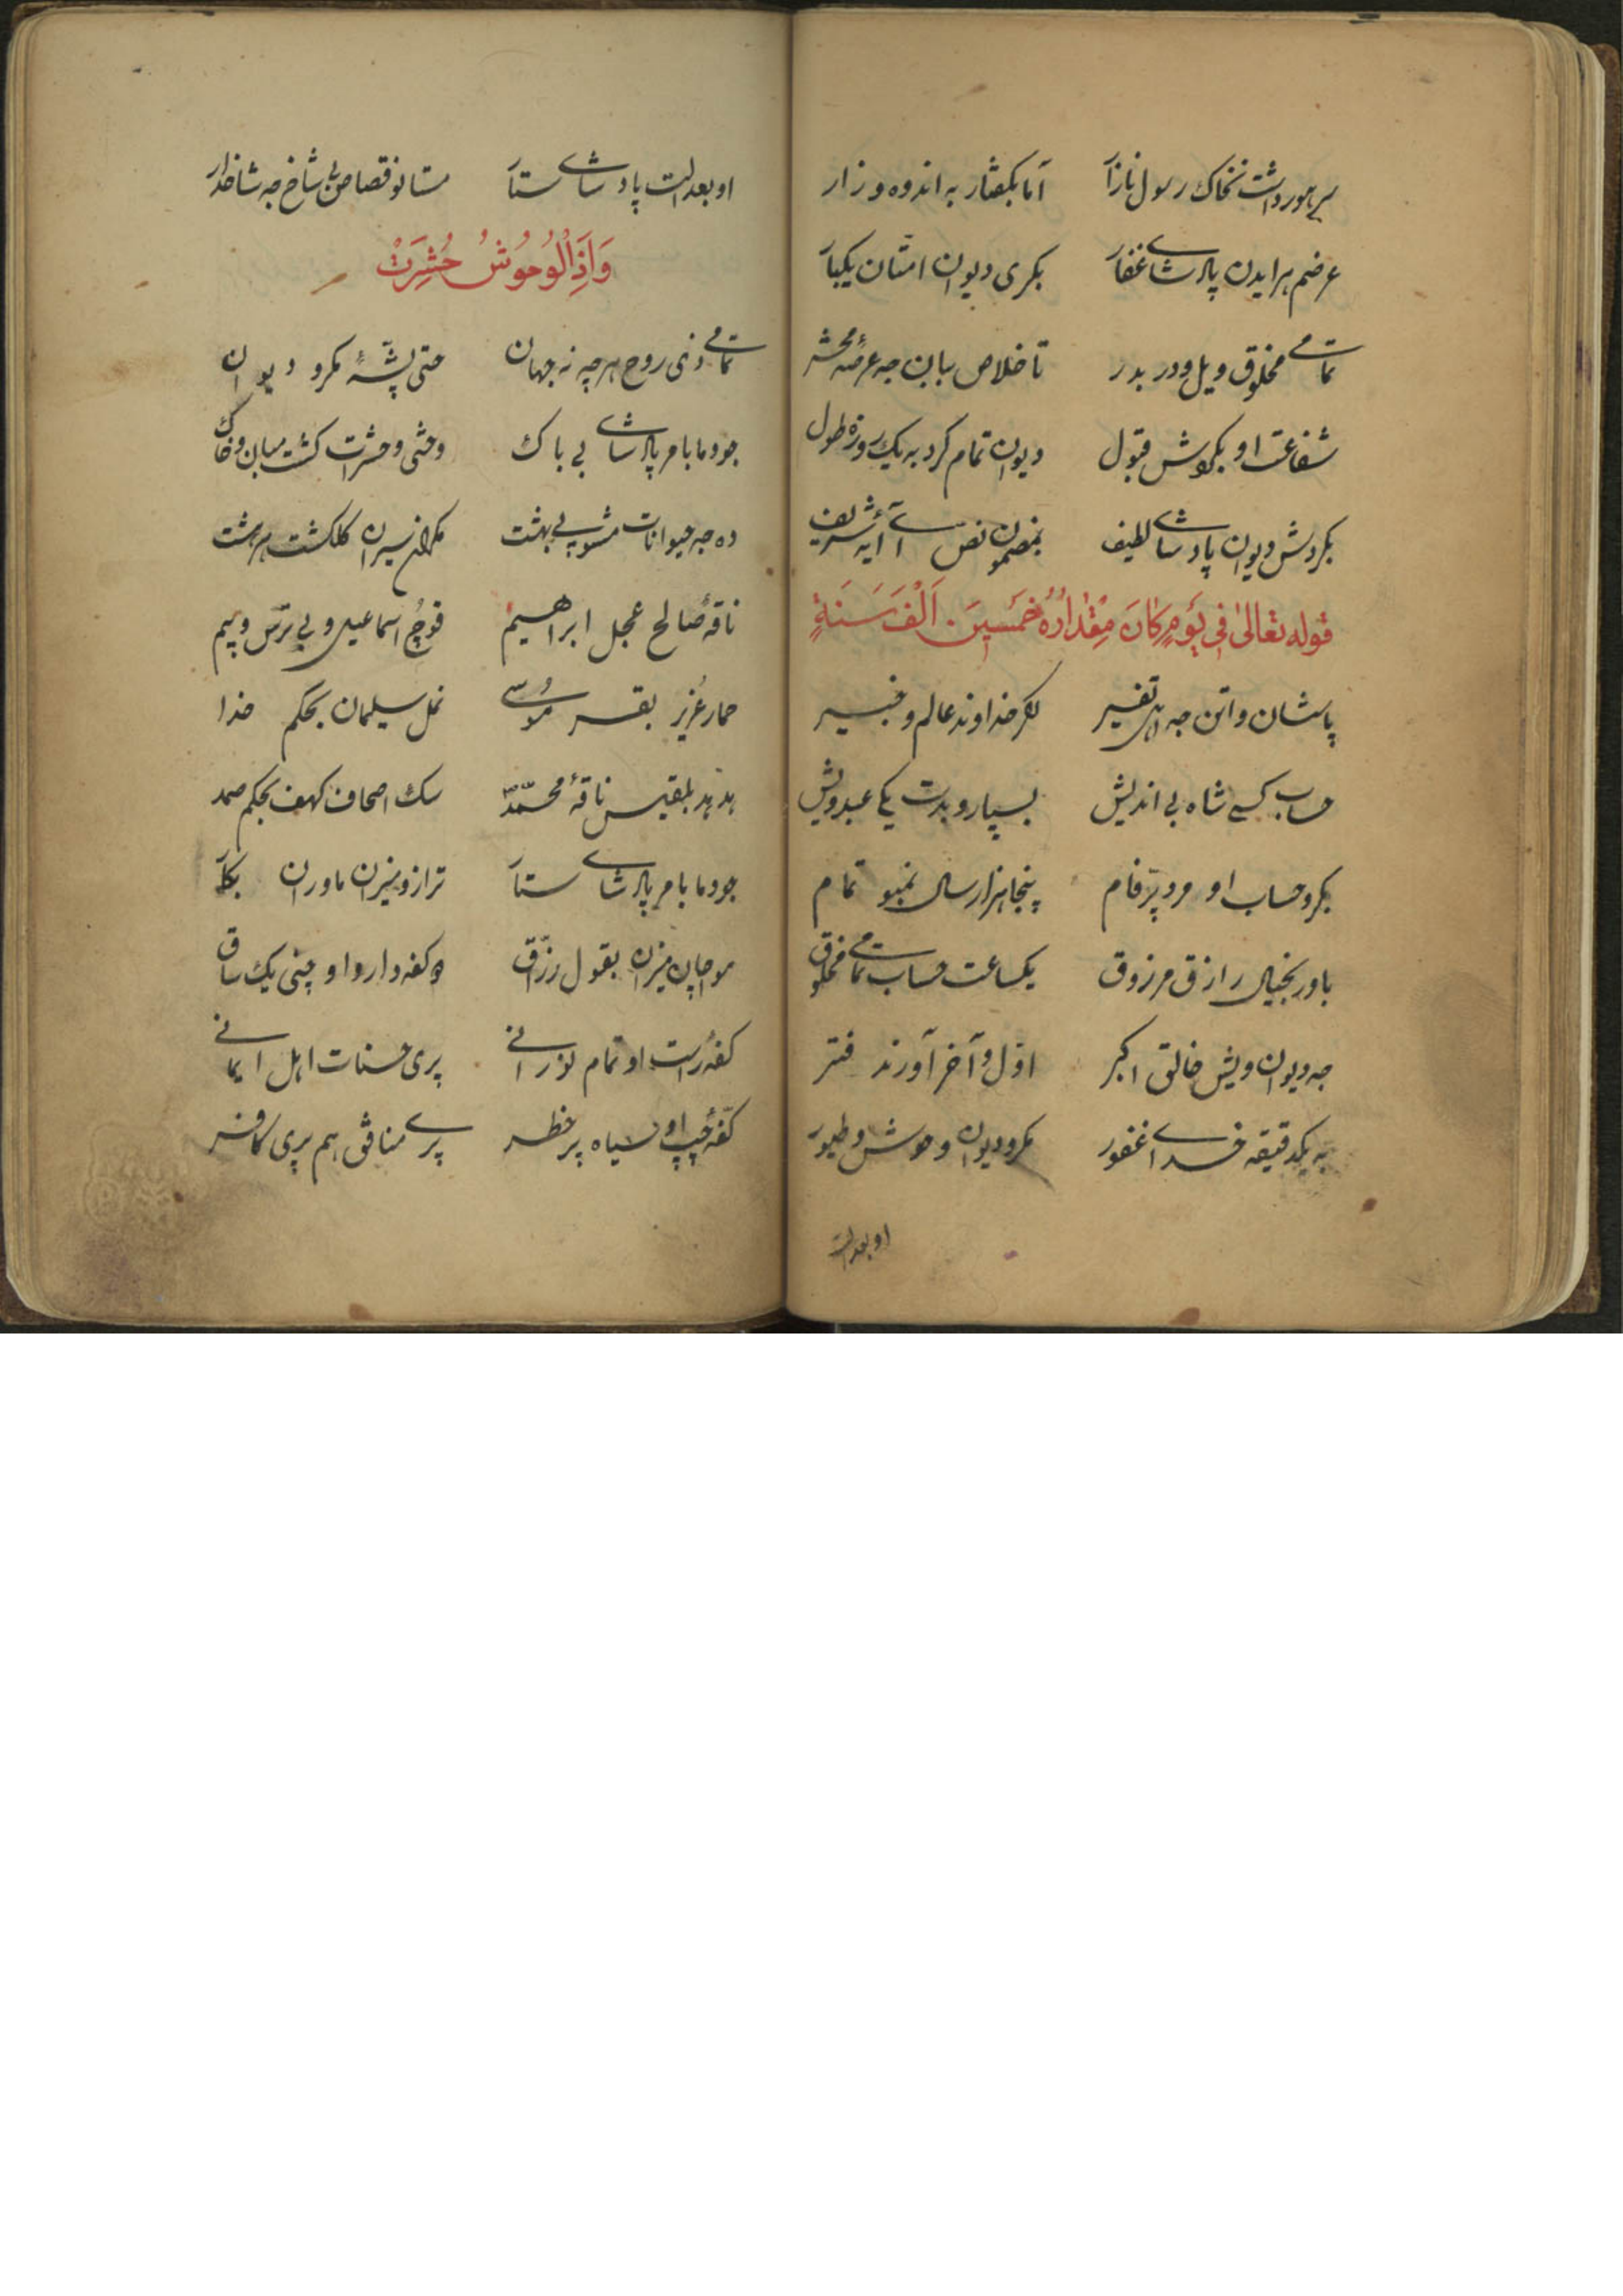 سر هورداشت نخاک رسول نازار آما بکفتار به اندوه و زار
عرضم هر ایدن پادشای غفار بکری دیوان امتان یکبار
تمامی مخلوق ویل و در بدر تا خلاص بیان جه عرصهٔ محشر
شفاعت او بکردش قبول دیوان تمام کرد به یک روزه طول
بکردش دیوان پادشای لطیف بمضمون نص آ آیهٔ شریف
قوله تعالیٰ فِی یَومٍ کَانَ مِقْدَارُهُ خَمسِینَ اَلْفَ سَنَةٍ
پاسشان واتن جه اهل تفسیر لکر خداوند عالم و خبیر
حساب کسی شاه بی اندیش بسپارو بدست یکی عبد ویش
بکرو حساب او مرد پر فام پنجاهزار سال نمبو تمام
باور بخیال رازق مرزوق یکساعت حساب تمامی مخلوق
جه دیوان ویش خالق اکبر اوّل و آخر آورند فتر
به یکدقیقه خدای غفور مکرو دیوان وحوش و طیور
او بعدلت
او بعدالت پادشای ستار مستانو قصاص بی شاخ جه شاخدار
وَاِذَالْوُحُوشُ حُشِرَتْ
تمامی ذی روح هر چه نه جهان حتی پشّهٔ مکرو دیوان
جودما بامر پادشای بی باک وحشی و حشرات کشت مبان وخاک
ده جه حیوانات مشو پی بهشت مکرانن سیران کلکشت هر بهشت
ناقهٔ صالح عجل ابراهیم قوچ اسماعیل و بی ترس و بیم
حمار عزیر بقر موسی نمل سلیمان بحکم خدا
هدهد بلقیس ناقهٔ محمّد سک اصحاف کهف بحکم صمد
جودما بامر پادشای ستار ترازو میزان ماوران بکار
مواچان میزان بقول رزّاق دو کفه دارو او چنی یک ساق
کفهٔ راست او تمام نورانی پری حسنات اهل ایمانی
کفّهٔ چپ او سیاه پر خطر پری منافق هم پری کافر